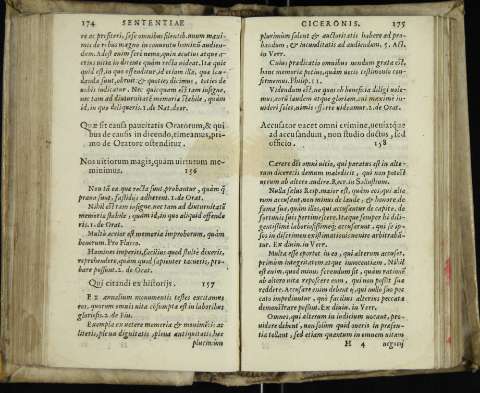 174 SENTENTIAE
re ac profiteri, sese omnibus silentib. unum maxi-
mis de rebus magno in conuentu hominū audien-
dum. Adest enim ferè nemo, quin acutius atque a-
crius uitia in dicente quàm recta uideat. Ita quic
quid est, in quo offenditur, id etiam illa, quae lau-
danda sunt, obruit: & quoties dicimus, toties de
nobis iudicatur. Nec quicquam est tam insigne,
nec tam ad diuturnitatē memoria stabile, quàm
id, in quo deliqueris. 1. de Nat. deor.
Quae sit causa paucitatis Oratorum, & qui
bus de causis in dicendo, timeamus, pri-
mo de Oratore ostenditur.
Nos uitiorum magis, quàm uirtutum me-
minimus. 156
Non tā ea, quae recta sunt, probantur, quàm q̄
praua sunt, fastidijs adherent. 1. de Orat.
Nihil est tam insigne, nec tam ad diuturnitatē
memoria stabile, quàm id, in quo aliquid offende
ris. 1. de Orat.
Multò acrior est memoria improborum, quàm
bonorum. Pro Flacco.
Homines imperiti, facilius quod stultè dixeris,
reprehendere, quàm quod sapienter tacueris, pro-
bare possunt. 2. de Orat.
Qui citandi ex historijs. 157
Ex annalium monumentis testes excitamus
eos, quorum omnis uita consumpta est in laboribus
gloriosis. 2. de Fin.
Exempla ex uetere memoria & monimētis ac
literis, plena dignitatis, plena antiquitatis, haec
plurimùm
CICERONIS. 175
plurimùm solent & auctoritatis habere ad pro-
bandum, & iucunditatis ad audiendum. 5. Act.
in Verr.
Cuius praedicatio omnibus uendum grata est,
hunc memoria potius, quàm uocis testimonio con-
firmemus. Philip. 11.
Videndum est, ne quos ob beneficia diligi uolu-
mus, eorū laudem atque gloriam, cui maximè in-
uideri solet, nimis efferre uideamur. 2. de Orat.
Accusator vacet omni crimine, ueniatq́ue
ad accusandum, non studio ductus, sed
officio. 158
Carere debet omni uitio, qui paratus est in alte-
rum dicere: is demum maledicit, qui non potest
uerum ab altero audire. Resp. in Salustium.
Nulla salus Reip. maior est, quàm eos, qui alte-
rum accusant, non minus de laude, & honore de
fama sua, quàm illos, qui accusantur de capite, de
fortunis suis pertimescere. Itaque semper hi dili-
gentissimè laboriosissimeq́; accusarunt, qui se ip-
sos in discrimen existimationis uenire arbitrabā-
tur. Ex diuin. in Verr.
Multa esse oportet in eo, qui alterum accuset,
primùm integritatem atque innocentiam. Nihil
est enim, quod minus ferendum sit, quàm rationē
ab altero uitae reposcere eum, qui non possit suae
reddere. Accusare enim debent ij, qui nullo suo pec
cato impediuntur, quò facilius alterius peccata
demonstrare possint. Ex diuin. in Verr.
Omnes, qui alterum in iudicium uocant, pro-
uidere debent, non solùm quid ueris in praesen-
tia tollant, sed etiam quantum in omnem uitam
H 4 negocij